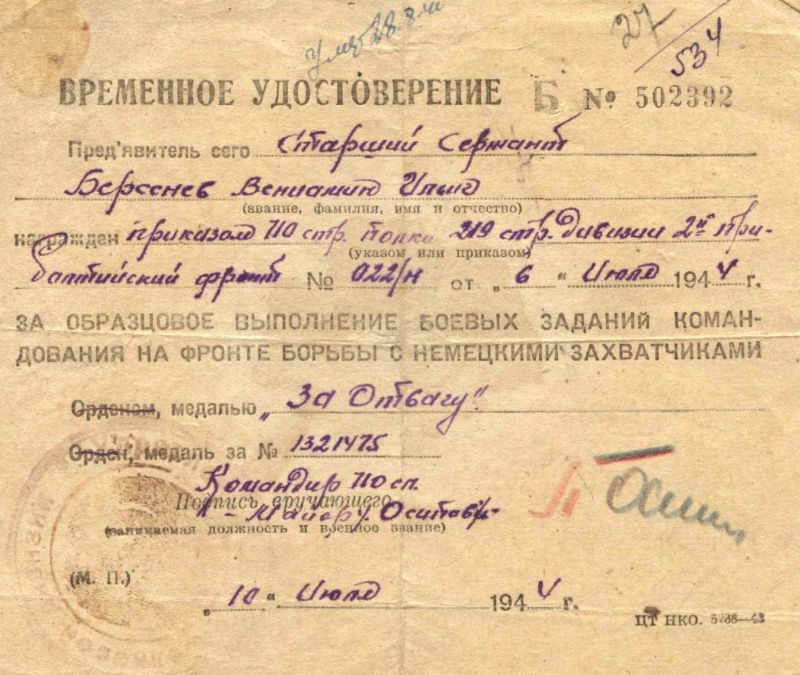 27
534
ВРЕМЕННОЕ УДОСТОВЕРЕНИЕ Б № 502392
Пред'явитель сего Старший Сержант
Берсенев Вениамин
(звание, фамилия, имя и отчество)
награжден приказом 110 стр. полка 219 стр. дивизии 2го При-
(указом или приказом)
балтийский фронт № 022/н от „6" Июля 1944 г.
ЗА ОБРАЗЦОВОЕ ВЫПОЛНЕНИЕ БОЕВЫХ ЗАДАНИЙ КОМАН-
ДОВАНИЯ НА ФРОНТЕ БОРЬБЫ С НЕМЕЦКИМИ ЗАХВАТЧИКАМИ
Орденом, медалью „За Отвагу"
Орден, медаль за № 1321475
Командир 110 сп.
Подпись вручающего
Майор
(занимаемая должность и военное звание)
(М. П.)
„10" Июля 1944 г.
ЦТ НКО. 5736—43